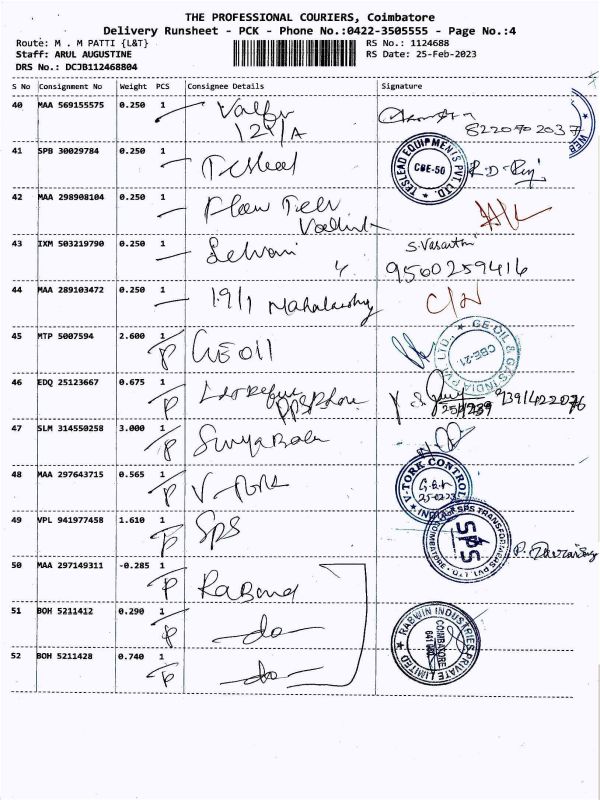 THE PROFESSIONAL COURIERS, Coimbatore
Delivery Runsheet - PCK - Phone No.:0422-3505555 - Page No.:4
Route: M . M PATTI {L&T}
RS No.: 1124688
Staff: ARUL AUGUSTINE
RS Date: 25-Feb-2023
DRS No.: DCJB112468804
S No Consignment No Weight PCS Consignee Details Signature
40 MAA 569155575 0.250 1
8220702037
WEB
41 SPB 30029784 0.250 1 Teslead
TESLEAD EQUIPMENTS PVT. LTD. CBE-50
42 MAA 298908104 0.250 1 Flow Tech
43 IXM 503219790 0.250 1 Selvani
S. Vasanthi
9560259416
44 MAA 289103472 0.250 1 19/1 Mahalakshmy
C/N
45 MTP 5007594 2.600 1 P GE Oil
GE OIL & GAS INDIA PVT. LTD. CBE-21.
46 EDQ 25123667 0.675 1 P
47 SLM 314550258 3.000 1 P Surya Bala
48 MAA 297643715 0.565 1 P V-Tork
V-TORK CONTROL INDIA
25-02-23
49 VPL 941977458 1.610 1 P SPS
SPS TRANSFORMERS PVT. LTD. COIMBATORE SPS
50 MAA 297149311 -0.285 1 P
51 BOH 5211412 0.290 1 P -do-
RABWIN INDUSTRIES PRIVATE LIMITED COIMBATORE
52 BOH 5211428 0.740 1 P -do-